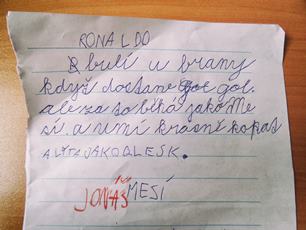 RONALDO
R bulí u brany
když dostane gol gol.
ale za to běhá jako Me
si. a umí krásně kopat
A LÝTA JAKO BLESK.
JONÁŠ MESÍ